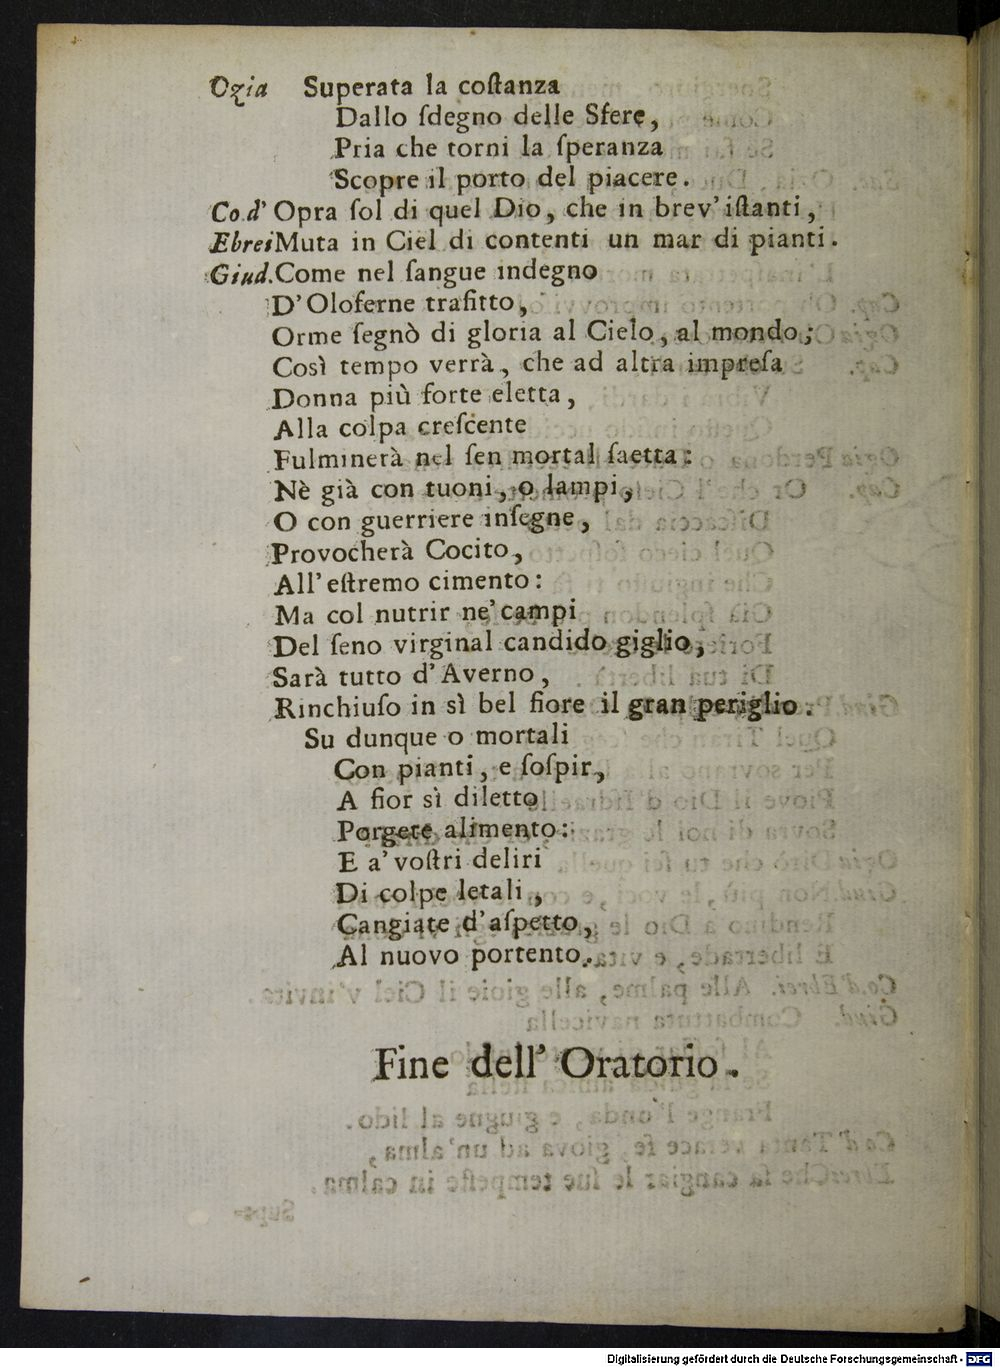 Ozia Superata la coſtanza
Dallo ſdegno delle Sfere,
Pria che torni la ſperanza
Scopre il porto del piacere.
Co.d' Opra ſol di quel Dio, che in brev'iſtanti,
Ebrei Muta in Ciel di contenti un mar di pianti.
Giud. Come nel ſangue indegno
D'Oloferne trafitto,
Orme ſegnò di gloria al Cielo, al mondo;
Così tempo verrà, che ad altra impreſa
Donna più forte eletta,
Alla colpa creſcente
Fulminerà nel ſen mortal ſaetta:
Nè già con tuoni, o lampi,
O con guerriere inſegne,
Provocherà Cocito,
All'eſtremo cimento:
Ma col nutrir ne'campi
Del ſeno virginal candido giglio,
Sarà tutto d'Averno,
Rinchiuſo in sì bel fiore il gran periglio.
Su dunque o mortali
Con pianti, e ſoſpir,
A fior sì diletto
Porgete alimento:
E a'voſtri deliri
Di colpe letali,
Cangiate d'aſpetto,
Al nuovo portento.
Fine dell' Oratorio.
Digitalisierung gefördert durch die Deutsche Forschungsgemeinschaft - DFG